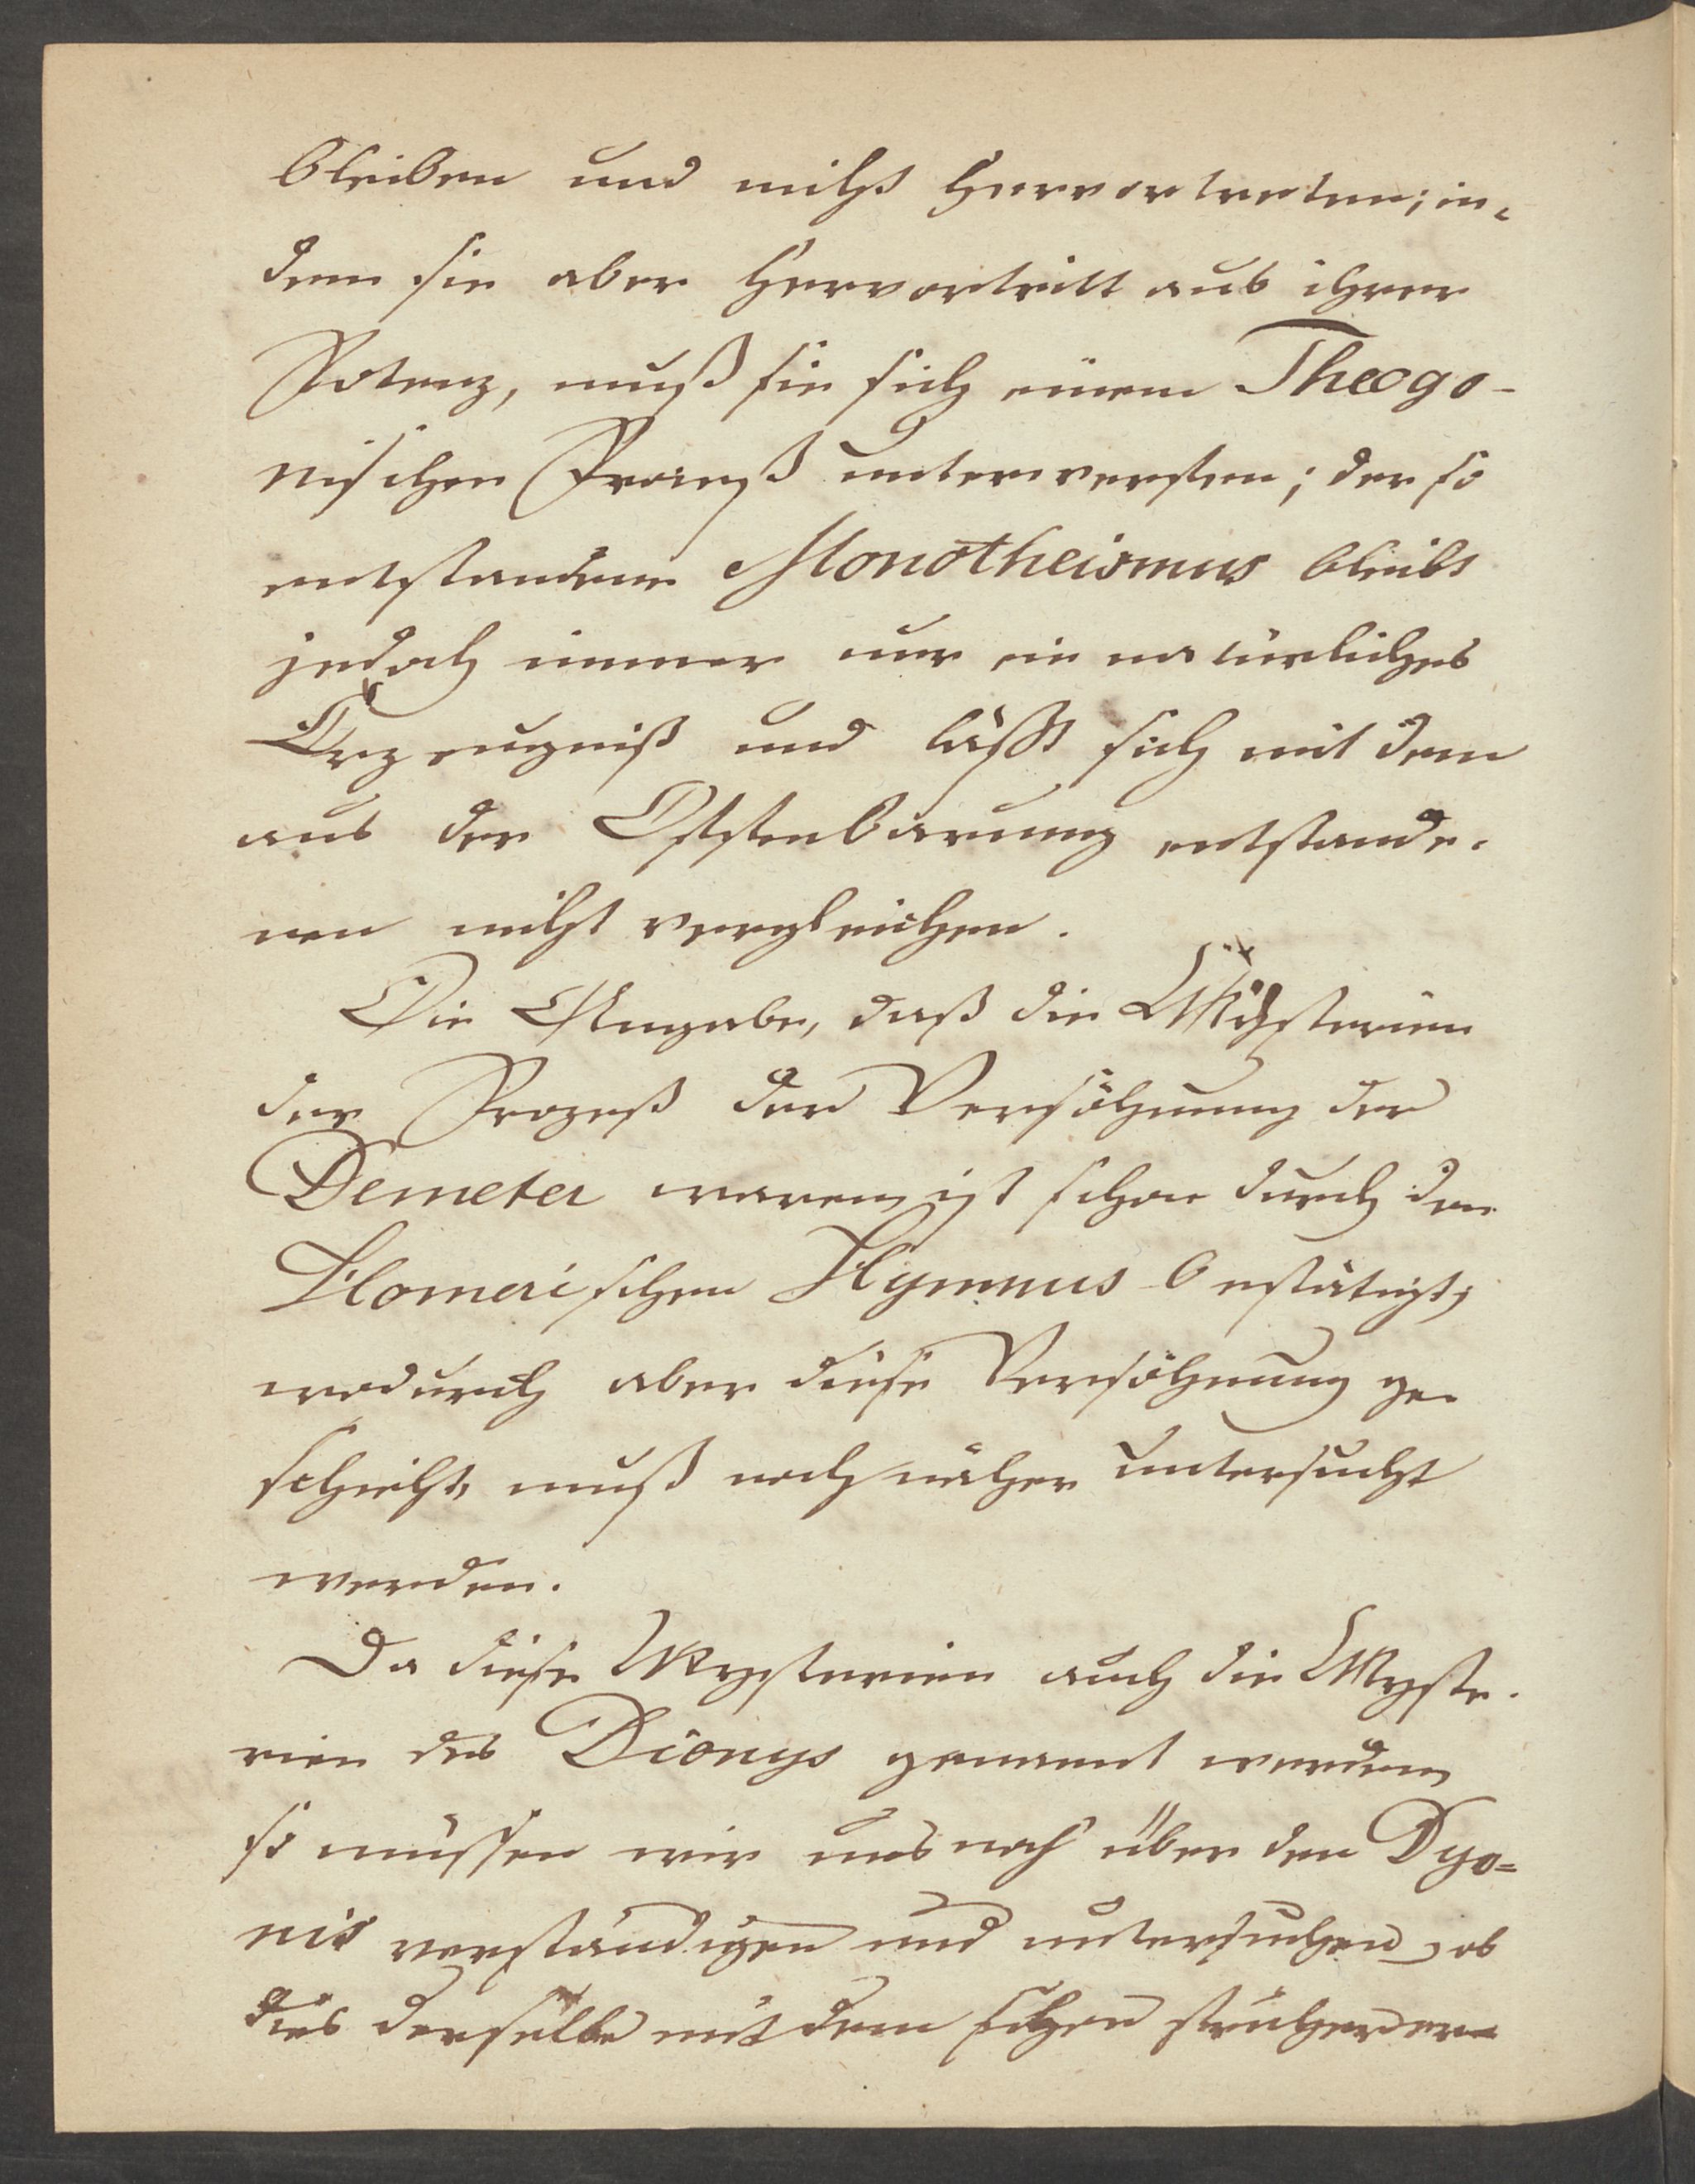 bleiben und nicht hervortreten; in-
dem sie aber hervortritt aus ihrer
Potenz, muß sie sich einem Theogo-
nischen Prozeß unterwerfen; der so
entstandene Monotheismus bleibt
jedoch immer nur ein natürliches
Erzeugniß und läßt sich mit dem
aus der Offenbarung entstande-
nen nicht vergleichen.
Die Angabe, daß die Mysterien
der Prozeß der Versöhnung der
Demeter waren, ist schon durch den
Homerischen Hymnus bestätigt,
wodurch aber diese Versöhnung ge-
schieht, muß noch näher untersucht
werden.
Da diese Mysterien auch die Myste-
rien des Dionys genannt werden,
so müssen wir uns noch über den Dyo-
nis verständigen und untersuchen, ob
dies derselbe mit dem schon früher er-